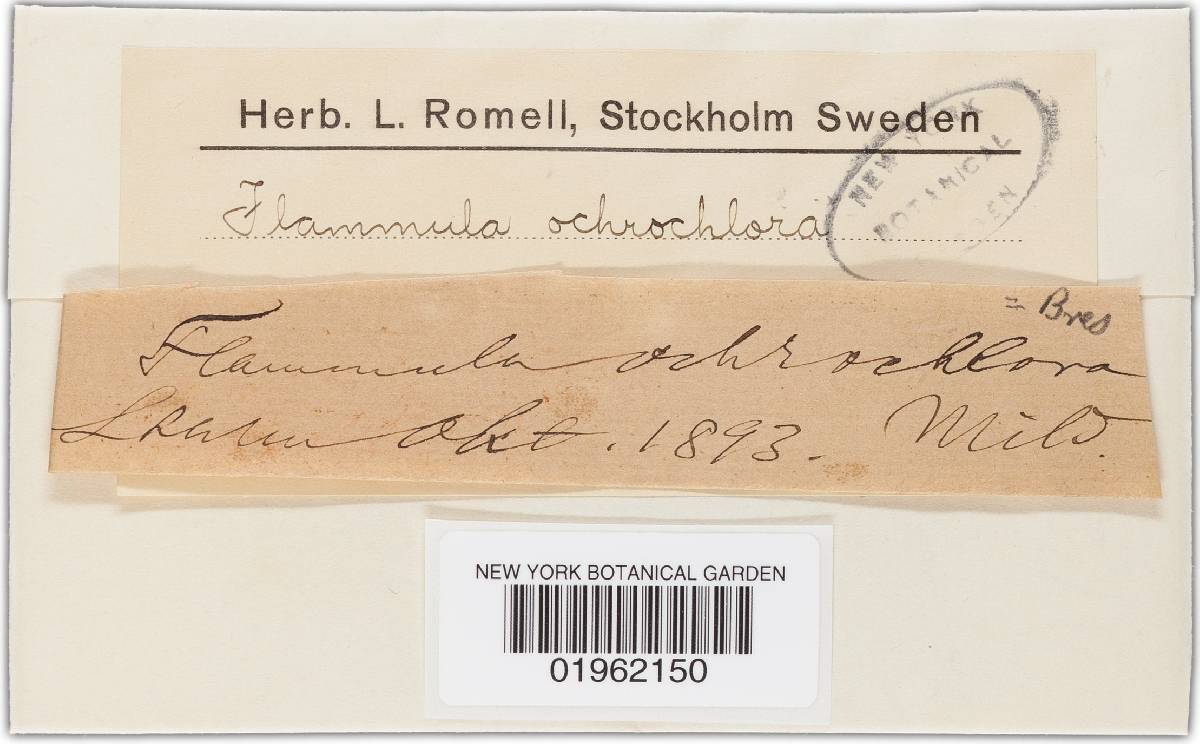 Herb. L. Romell, Stockholm Sweden
NEW YORK
BOTANICAL
Flammula ochrochlora
= Bres
Flammula ochrochlora
Okt. 1893. Mild.
NEW YORK BOTANICAL GARDEN
01962150